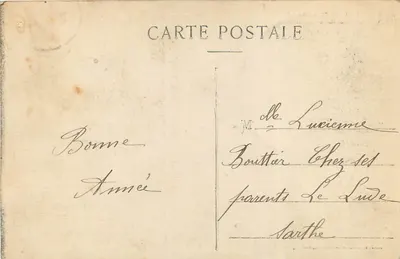 CARTE POSTALE
Bonne
Année
Mlle Lucienne
Bouttier Chez ses
parents Le Lude
Sarthe